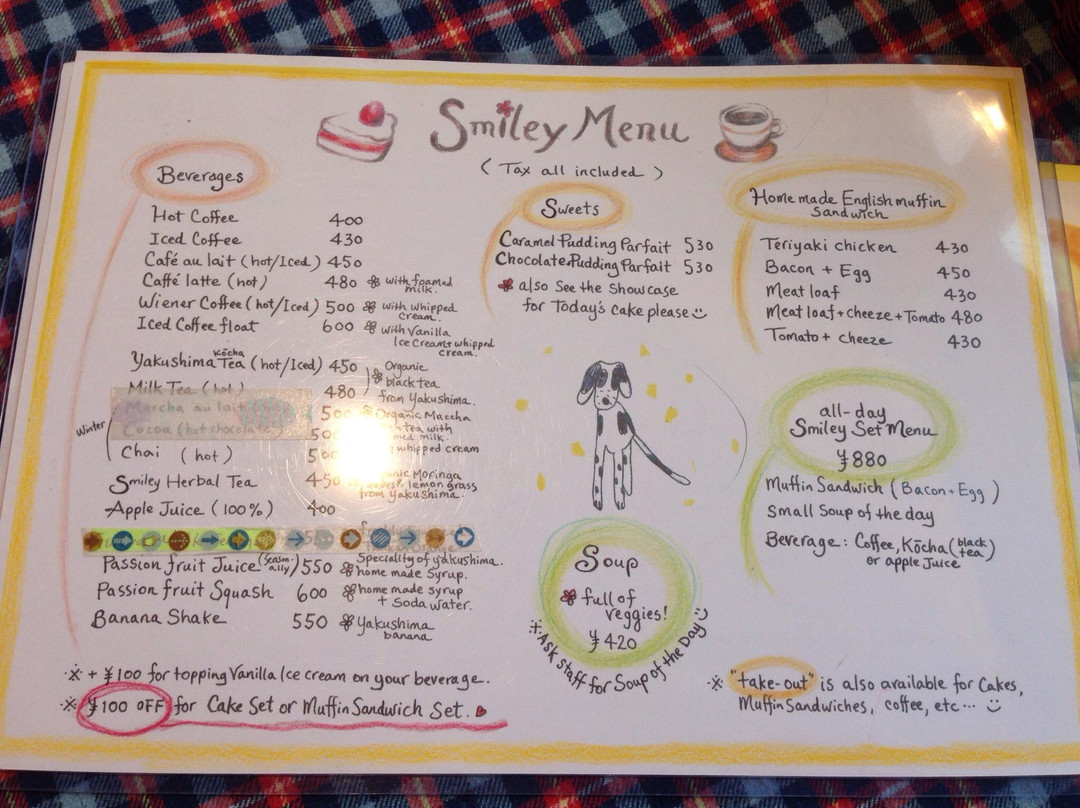 Smiley Menu
( Tax all included )
Beverages
Hot Coffee 400
Iced Coffee 430
Café au lait (hot/Iced) 450
Caffé latte (hot) 480 with foamed milk.
Wiener Coffee (hot/Iced) 500 with whipped cream.
Iced Coffee float 600 with Vanilla Ice Cream + whipped cream.
Kōcha
Yakushima Tea (hot/Iced) 450
Organic black tea from Yakushima.
Milk Tea (hot) 480
Winter
Matcha au lait
Organic Maccha
tea with
milk.
Cocoa (hot chocolate)
whipped cream
Chai (hot)
Smiley Herbal Tea 450
Moringa
lemon grass
from Yakushima.
Apple Juice (100%) 400
Passion fruit Juice (Seasonally) 550 Speciality of yakushima.
home made syrup.
Passion fruit Squash 600 home made syrup + Soda water.
Banana Shake 550 Yakushima banana
※ + ¥100 for topping Vanilla Ice cream on your beverage.
※ ¥100 OFF for Cake Set or Muffin Sandwich Set.
Sweets
Caramel Pudding Parfait 530
Chocolate Pudding Parfait 530
also See the Showcase
for Today's cake please
Soup
full of
veggies!
¥420
※Ask staff for Soup of the Day
Home made English muffin
Sandwich
Teriyaki chicken 430
Bacon + Egg 450
Meat loaf 430
Meat loaf + cheeze + Tomato 480
Tomato + cheeze 430
all-day
Smiley Set Menu
¥880
Muffin Sandwich (Bacon + Egg)
Small Soup of the day
Beverage : Coffee, Kōcha (black tea)
or apple Juice
※ "take-out" is also available for Cakes,
Muffin Sandwiches, coffee, etc…